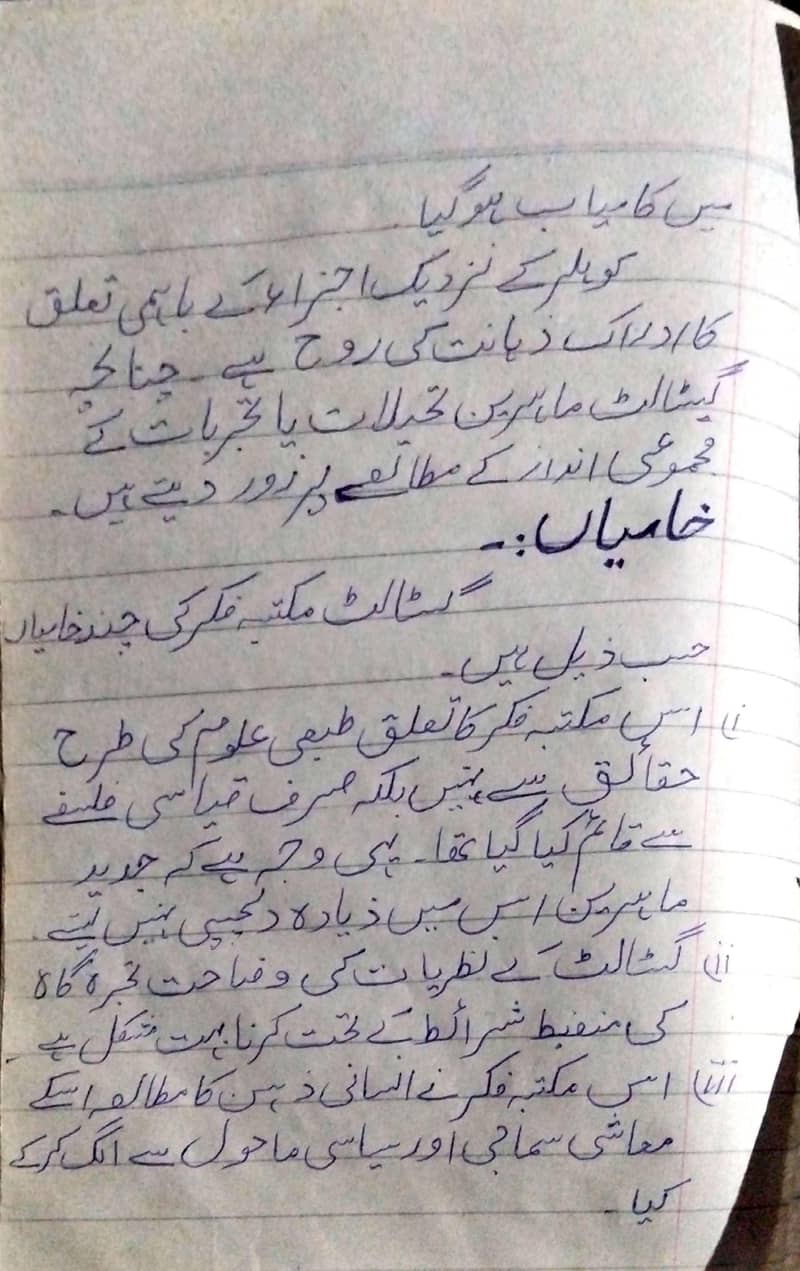 میں کامیاب ہوگیا۔
کوہلر کے نزدیک اجزاء کے باہمی تعلق
کا ادراک ذہانت کی روح ہے۔ چنانچہ
گیٹالٹ ماہرین تخیلات یا تجربات کے
مجموعی انداز کے مطالعے پر زور دیتے ہیں۔
خامیاں:۔
گسٹالٹ مکتبہ فکر کی چند خامیاں
حسب ذیل ہیں۔
i) اس مکتبہ فکر کا تعلق طبعی علوم کی طرح
حقائق سے نہیں بلکہ صرف قیاسی فلسفے
سے قائم کیا گیا تھا۔ یہی وجہ ہے کہ جدید
ماہرین اس میں ذیادہ دلچسپی نہیں لیتے۔
ii) گسٹالٹ کے نظریات کی وضاحت تجربہ گاہ
کی منضبط شرائط کے تحت کرنا بہت مشکل ہے۔
iii) اس مکتبہ فکر نے انسانی ذہن کا مطالعہ اسکے
معاشی سماجی اور سیاسی ماحول سے الگ کرکے
کیا۔